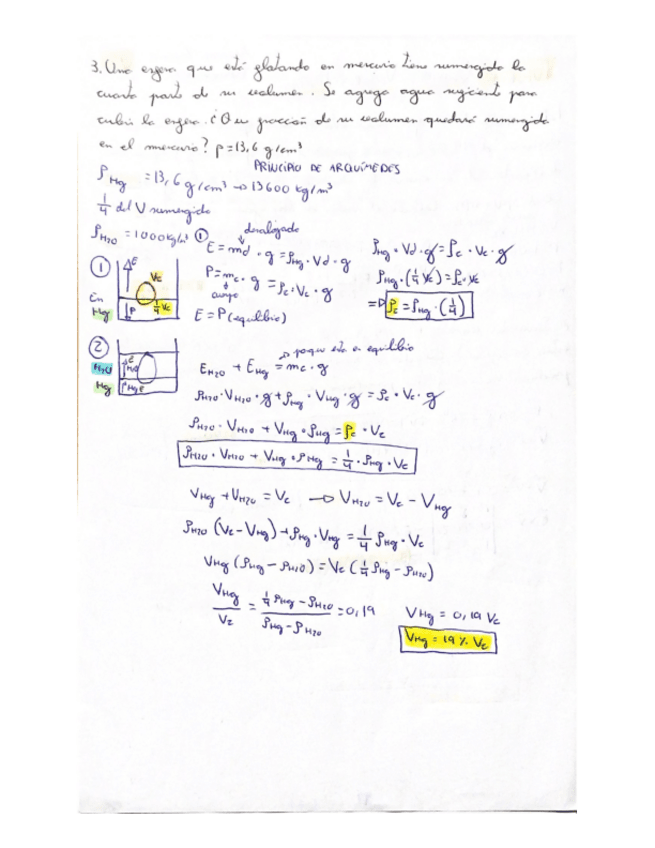 3. Una esfera que está flotando en mercurio tiene sumergida la
cuarta parte de su volumen. Se agrega agua suficiente para
cubrir la esfera. ¿Que fracción de su volumen quedará sumergida
en el mercurio? ρ=13,6 g/cm³
PRINCIPIO DE ARQUÍMEDES
ρHg = 13,6 g/cm³ → 13600 kg/m³
1/4 del V sumergido
ρH2O = 1000kg/m³
① desalojado
E = md · g = ρHg · Vd · g
P = mc · g = ρc · Vc · g
cuerpo
E = P (equilibrio)
ρHg · Vd · g = ρc · Vc · g
ρHg · (1/4 Vc) = ρc · Vc
⇒ ρc = ρHg · (1/4)
① E Vc
En Hg P 1/4 Vc
② H2O E
Hg
→ porque esta en equilibrio
EH2O + EHg = mc · g
ρH2O · VH2O · g + ρHg · VHg · g = ρc · Vc · g
ρH2O · VH2O + VHg · ρHg = ρc · Vc
ρH2O · VH2O + VHg · ρHg = 1/4 · ρHg · Vc
VHg + VH2O = Vc → VH2O = Vc - VHg
ρH2O (Vc - VHg) + ρHg · VHg = 1/4 ρHg · Vc
VHg (ρHg - ρH2O) = Vc (1/4 ρHg - ρH2O)
VHg/Vc = (1/4 ρHg - ρH2O)/(ρHg - ρH2O) = 0,19
VHg = 0,19 Vc
VHg = 19 % Vc